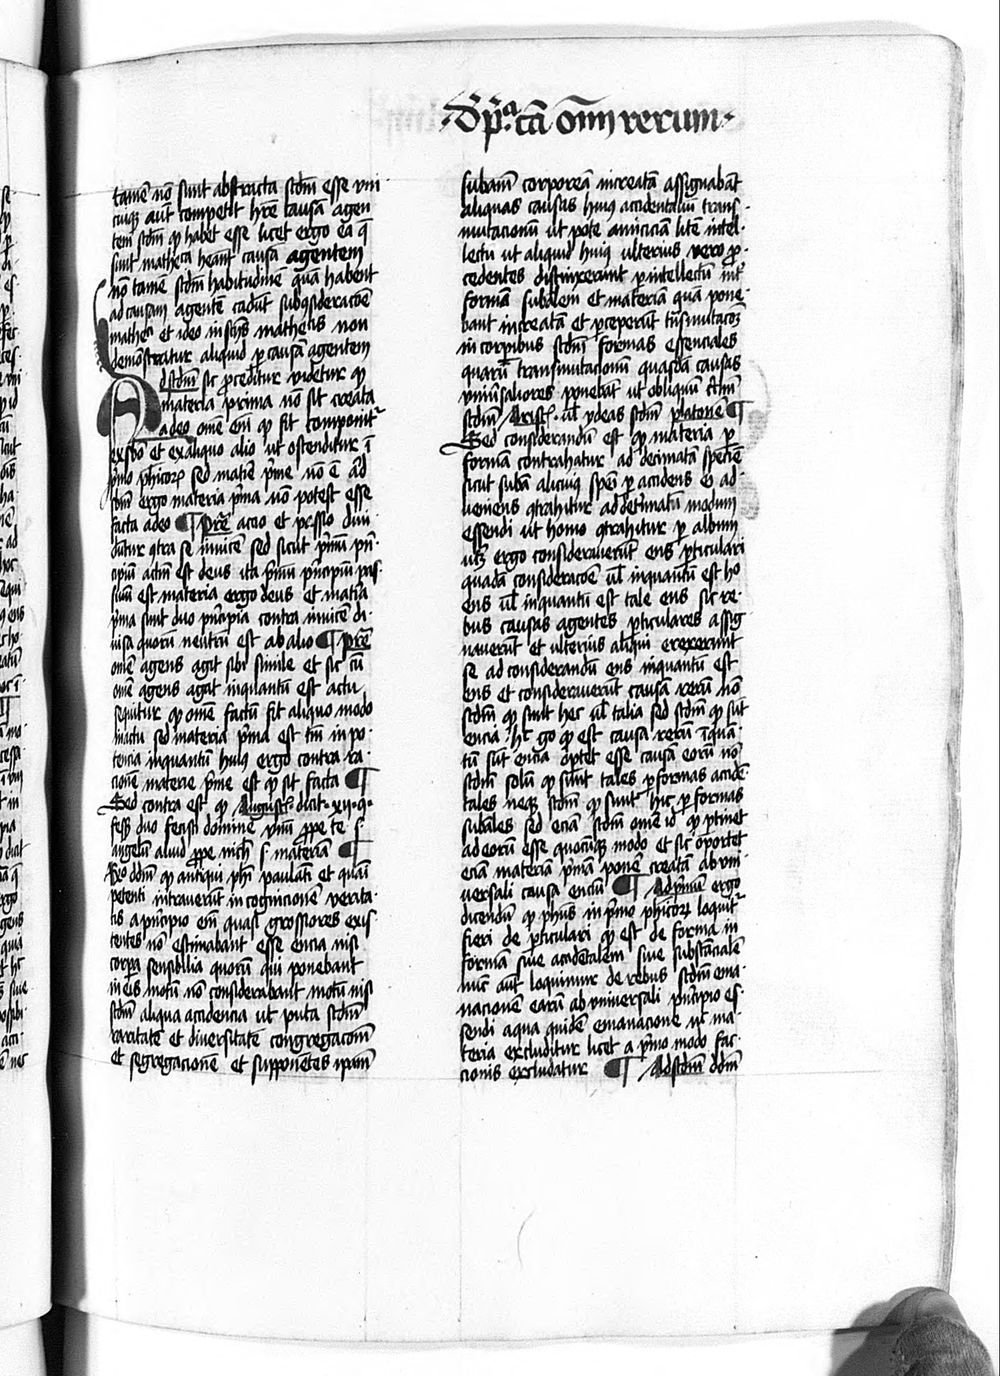 ·De pͥª cā oīm rerum·
tamē nō sunt abstracta scdm̄ esse vni
cuiqꝫ aut̄ competit hr̄e causā agen
tem scdm̄ qꝫ habet esse licet ergo ea q̄
sunt mathēca heant̄ causā agentem
nō tamē scdm̄ habitudinē quā habent
ad causam agentē cadūt sub ꝯsideracōe
mathēci et ideo in sciēs mathēcis non
demōstratur aliquid ꝑ causā agentem
Ad scdm̄ sic ꝓceditur videtur qꝫ
materia prima nō sit creata
a deo omē em̄ qꝫ fit componit᷑
ex sb̄o et ex aliquo alio ut ostenditur ī
pͥmo phīcoꝝ sed matīe pͥme nō ē aliqd
sb̄m ergo materia pͥma nō potest esse
facta a deo ¶ Pret̄ accio et passio diui
dūtur ꝯtra se inuicē sed sicut pͥmū pͥn
cipiū actiuū est deus ita pͥmū pͥncipiū pas
siuū est materia ergo deus et matīa
pͥma sunt duo pͥncipia contra inuicē di
uisa quorū neutrū est ab alio ¶ Pret̄
omē agens agit sibi simile et sic cū
omē agens agat inquantū est actu
sequitur qꝫ omē factū sit aliquo modo
in actu sed materia pͥma est tm̄ in po
tencia inquantū huiꝰ ergo contra ra
cionē materie pͥme est qꝫ sit facta ¶
Sed contra est qꝫ Augustꝰ dicit ·xii· ꝯ
fess̄ duo fecisti domine vnū ꝓpe te s
angelū aliud ꝓpe nich̄ s materiā ¶
Rō dd̄m qꝫ antiqui phī paulatī et quasi
pedetī intrauerūt in cognicionē verita
tis a pͥncipio em̄ quasi grossiores exis
tentes nō estimabant esse encia nisi
corꝑa sensibilia quorū qui ponebant
in eis motū nō considerabant motū nisi
scdm̄ aliqua accidencia ut puta scdm̄
raritatē et diversitatē congregacōem
et segregacionē et supponētes ipam̄
subam̄ corporeā increatā assignabāt
aliquas causas huiꝰ accidentaliū trans
mutacionū ut pote amiciciā litē intel
lectū ut aliquid huiꝰ ulterius vero ꝓ
cedentes distinxerunt ꝑ intellectū int̄
formā subālem et materiā quā pone
bant increatā et ꝑceperūt trāsmutacōꝫ
in corpibus scdm̄ formas essenciales
quarū transmutacionū quasdā causas
vniūsaliores ponebāt ut obliquū circulū
scdm̄ Aristꝰ vl̄ ydeas scdm̄ platonē ¶
Sed considerandū est qꝫ materia ꝑ
formā contrahatur ad det̄minatā speciē
sicut subā alicuiꝰ spēi ꝑ accidens ei ad
ueniens ꝯtrahitur ad det̄minatū modum
essendi ut homo ꝯtrahitur ꝑ album
vtqꝫ ergo considerauerūt ens ꝑticulari
quadā consideracōe vl̄ inquantū est hoc
ens vl̄ inquantū est tale ens sic re
bus causas agentes ꝑticulares assig
nauerūt et ulterius aliqui erexerunt
se ad considerandū ens inquantū est
ens et considerauerūt causā rerū nō
scdm̄ qꝫ sunt hec vl̄ talia sed scdm̄ qꝫ sūt
encia hͨ gͦ qꝫ est causa rerū inquan
tū sūt encia oportet esse causā eorū nō
scdm̄ solū qꝫ sunt tales ꝑ formas accidē
tales neqꝫ scdm̄ qꝫ sunt hͨ ꝑ formas
subāles sed eciā scdm̄ omē id qꝫ ꝑtinet
ad eorū esse quocūqꝫ modo et sic oportet
eciā materiā pͥmā ponē creatā ab vni
versali causa enciū ¶ Ad pͥmū ergo
dicendū qꝫ phūs in pͥmo phīcoꝝ loquit᷑
fieri de ꝑticulari qꝫ est de forma in
formā siue accidētalem siue substāncialē
nūc aut̄ loquimur de rebus scdm̄ ema
nacionē earū ab vniuersali pͥncipio es
sendi a qua quidē emanacione nͨ ma
teria excluditur licet a pͥmo modo fac
cionis excludatur ¶ Ad scdm̄ dd̄m